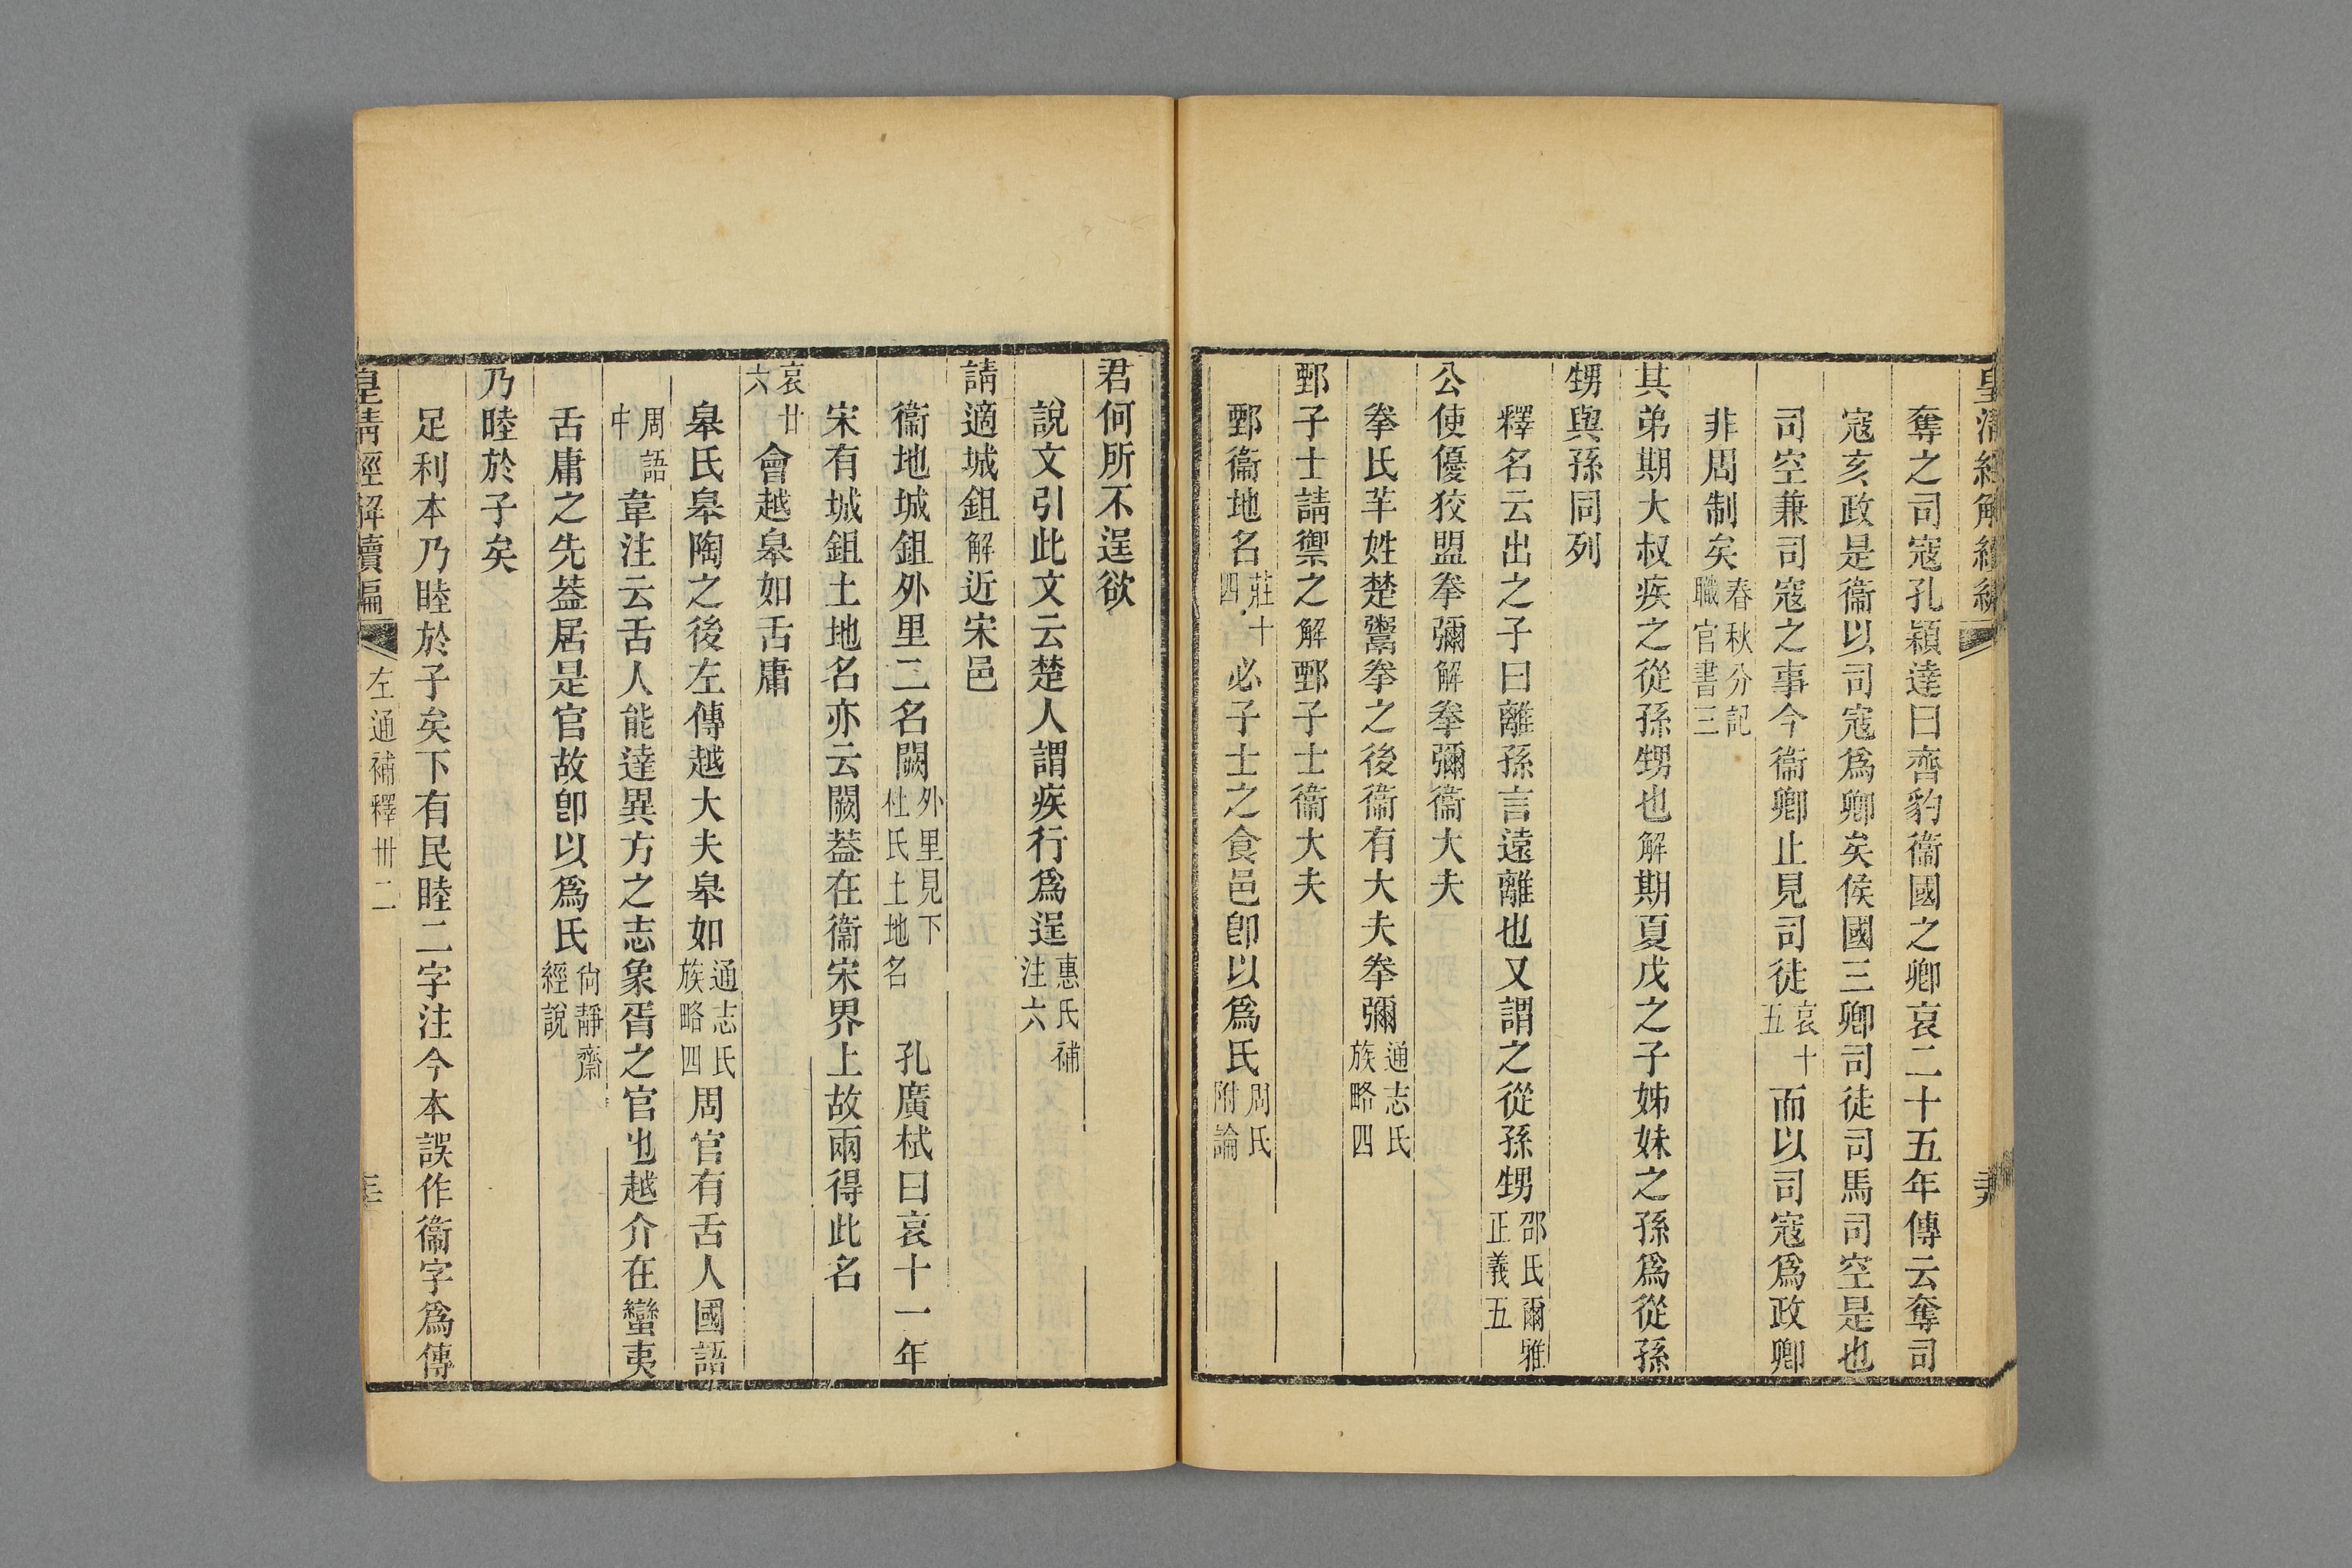 奪之司寇孔穎達曰齊豹衞國之卿哀二十五年傳云奪司
寇亥政是衞以司寇爲卿矣侯國三卿司徒司馬司空是也
司空兼司寇之事今衞卿止見司徒哀十五而以司寇爲政卿
非周制矣春秋分記職官書三
其弟期大叔疾之從孫甥也解期夏戊之子姊妹之孫爲從孫
甥與孫同列
釋名云出之子曰離孫言遠離也又謂之從孫甥邵氏爾雅正義五
公使優狡盟拳彌解拳彌衞大夫
拳氏芈姓楚鬻拳之後衞有大夫拳彌通志氏族略四
鄄子士請禦之解鄄子士衞大夫
鄄衞地名莊十四必子士之食邑卽以爲氏周氏附論
君何所不逞欲
說文引此文云楚人謂疾行爲逞惠氏補注六
請適城鉏解近宋邑
衞地城鉏外里二名闕外里見下杜氏土地名 孔廣栻曰哀十一年
宋有城鉏土地名亦云闕葢在衞宋界上故兩得此名
哀廿六會越皋如舌庸
皋氏皋陶之後左傳越大夫皋如通志氏族略四周官有舌人國語
周語中韋注云舌人能達異方之志象胥之官也越介在蠻夷
舌庸之先葢居是官故卽以爲氏尙靜齋經說
乃睦於子矣
足利本乃睦於子矣下有民睦二字注今本誤作衞字爲傳
皇淸經解續編
左通補釋卅二